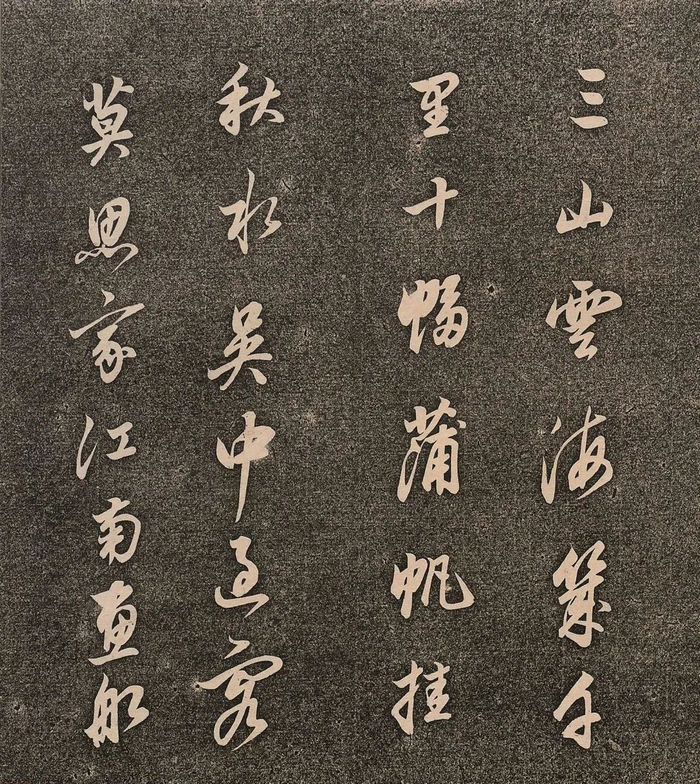 三山雲海幾千
里十幅蒲帆挂
秋水吳中過客
莫思家江南畫船